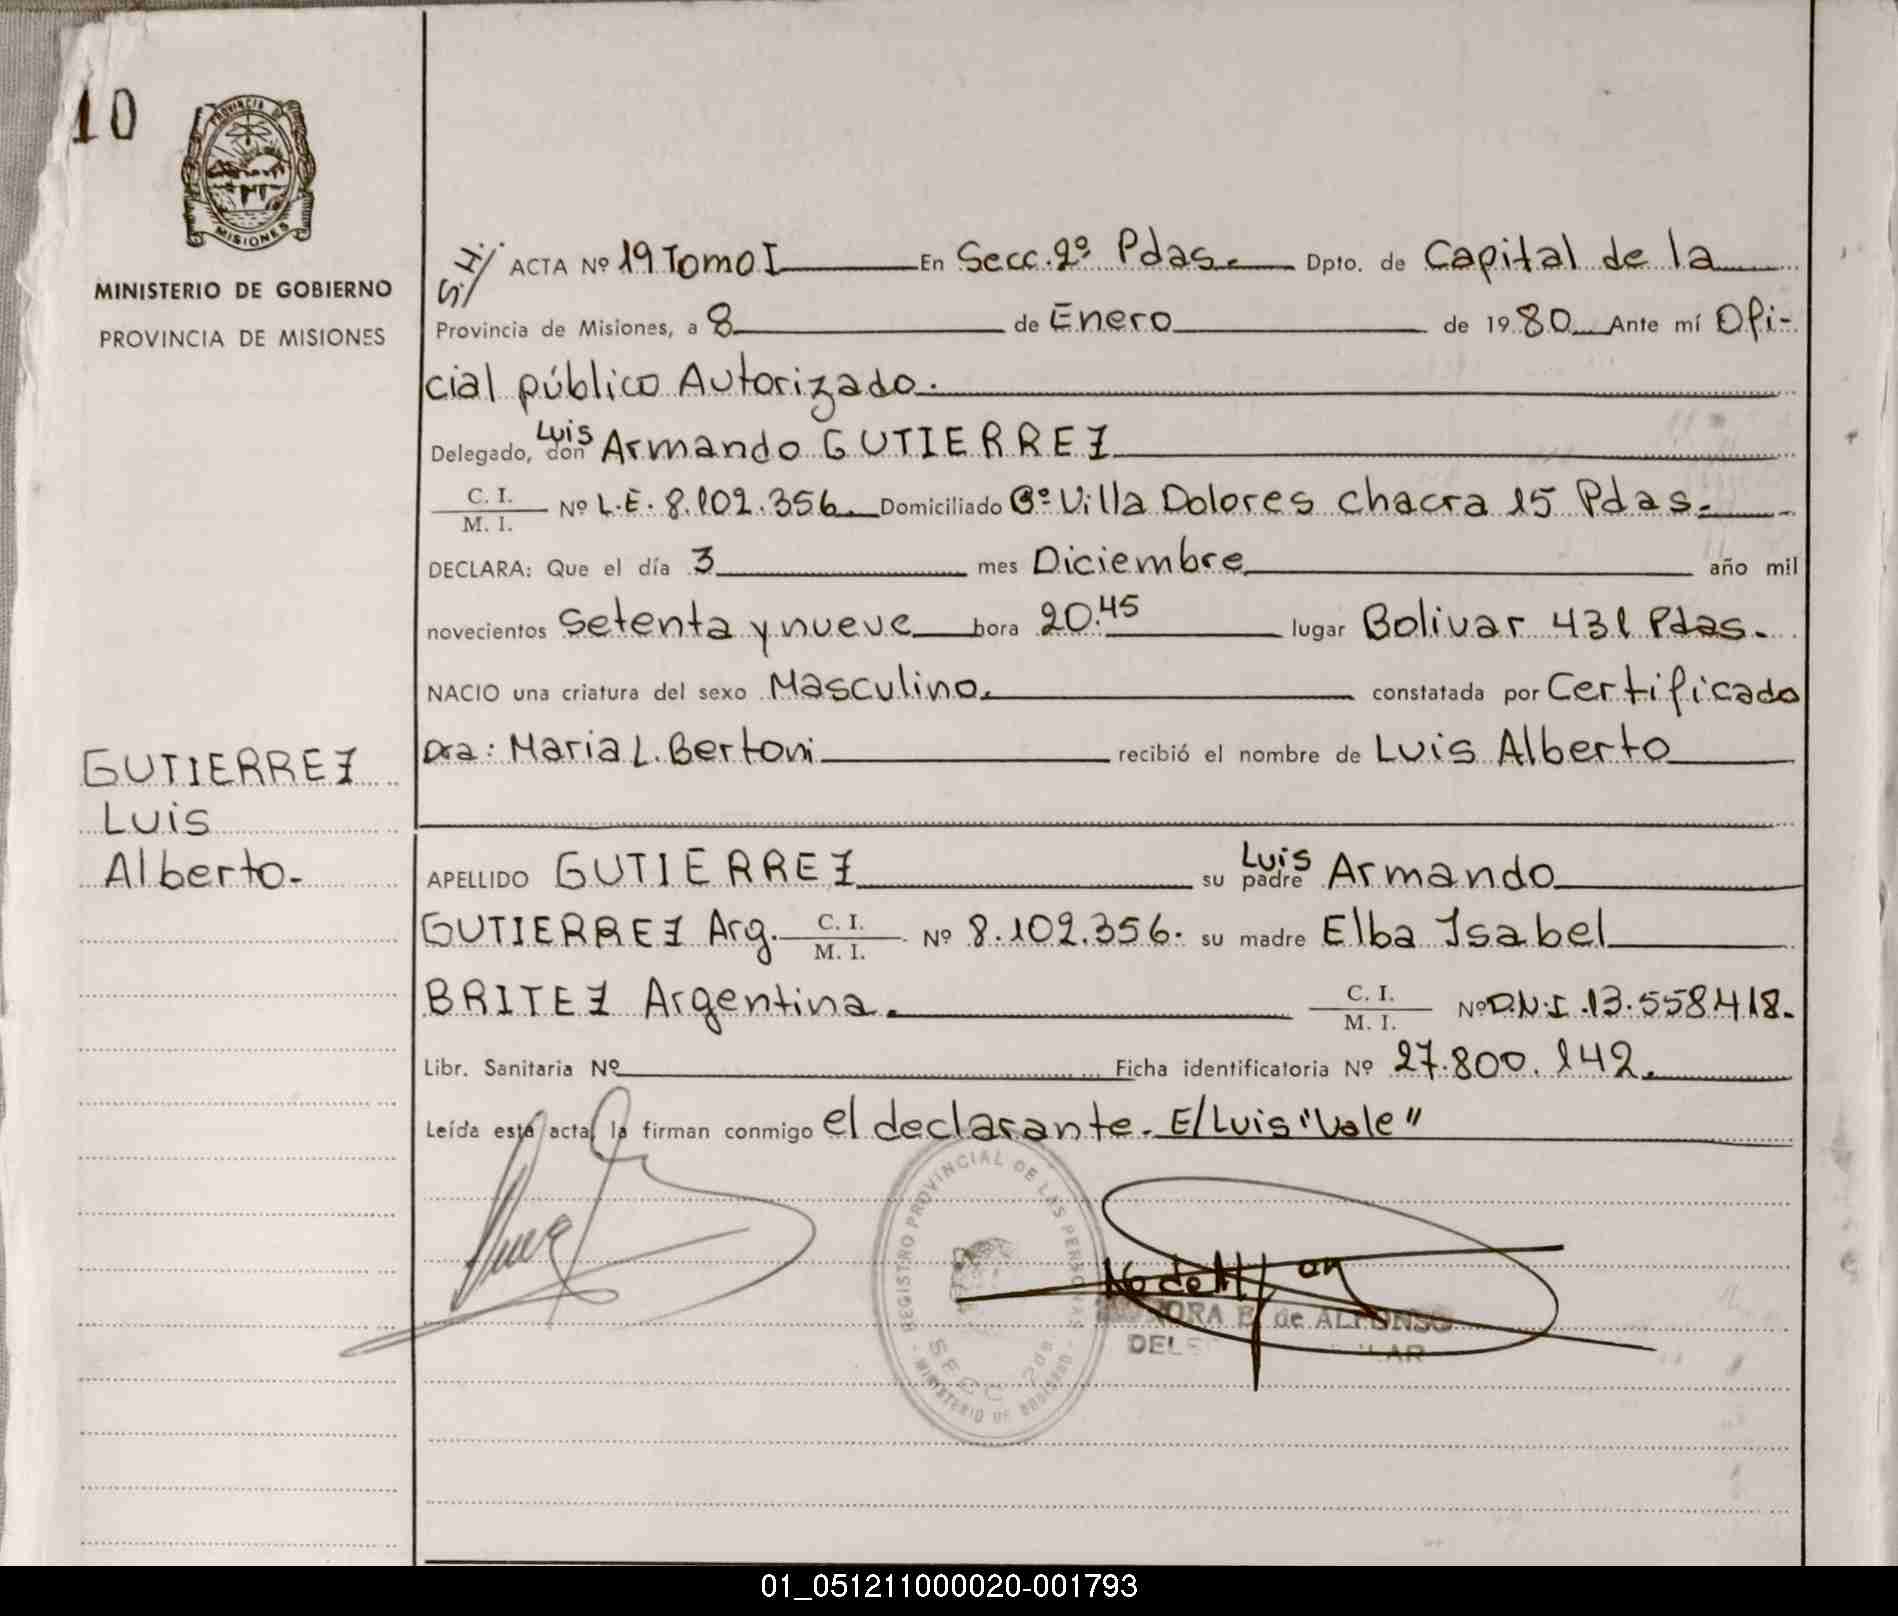 10
PROVINCIA DE
MISIONES
MINISTERIO DE GOBIERNO
PROVINCIA DE MISIONES
GUTIERREZ
Luis
Alberto-
S.H/ ACTA Nº 19 Tomo I En Secc. 2º Pdas. Dpto. de Capital de la
Provincia de Misiones, a 8 de Enero de 1980 Ante mí Ofi-
cial público Autorizado.
Delegado, don Luis Armando GUTIERREZ
C. I.
M. I. Nº L.E. 8.102.356. Domiciliado Bº Villa Dolores chacra 15 Pdas.
DECLARA: Que el día 3 mes Diciembre año mil
novecientos setenta y nueve hora 20.45 lugar Bolivar 431 Pdas.
NACIO una criatura del sexo Masculino. constatada por Certificado
Dra: Maria L. Bertoni recibió el nombre de Luis Alberto
APELLIDO GUTIERREZ su padre Luis Armando
GUTIERREZ Arg. C. I.
M. I. Nº 8.102.356. su madre Elba Isabel
BRITEZ Argentina. C. I.
M. I. Nº D.N.I. 13.558.418.
Libr. Sanitaria Nº Ficha identificatoria Nº 27.800.142.
Leída esta acta, la firman conmigo el declarante. E/Luis "Vale"
REGISTRO PROVINCIAL DE LAS PERSONAS
SECC. 2da
- MINISTERIO DE GOBIERNO -
B. de ALFONSO
01_051211000020-001793